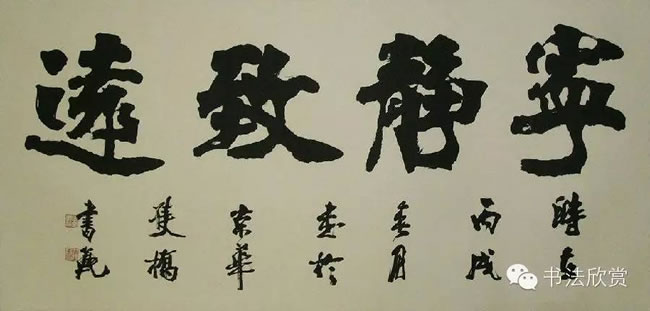 寧靜致遠
時在
丙戌
春月
於
京華
雙橋
書
书法欣赏